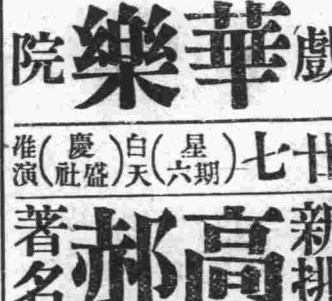 戲華樂院
廿七(星期六)白天(慶盛社)准演
新排高郝著名